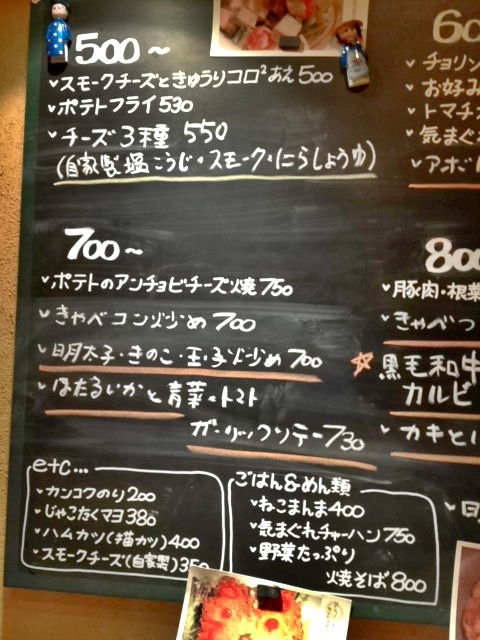 500~
スモークチーズときゅうりコロ²あえ 500
ポテトフライ 530
チーズ3種 550
(自家製塩こうじ・スモーク・にらしょうゆ)
700~
ポテトのアンチョビチーズ焼 750
きゃべコンソメ炒め 700
明太子・きのこ・玉子炒め 700
ほたるいかと青菜・トマト
ガーリックソテー 730
etc...
カンコクのり 200
じゃこたくマヨ 380
ハムカツ(描カツ) 400
スモークチーズ(自家製) 350
ごはん&めん類
ねこまんま 400
気まぐれチャーハン 750
野菜たっぷり
焼そば 800
60
チョリン
お好み
トマチ
気まぐ
アボ
800
豚肉・根菜
きゃべつ
黒毛和牛
カルビ
カキと